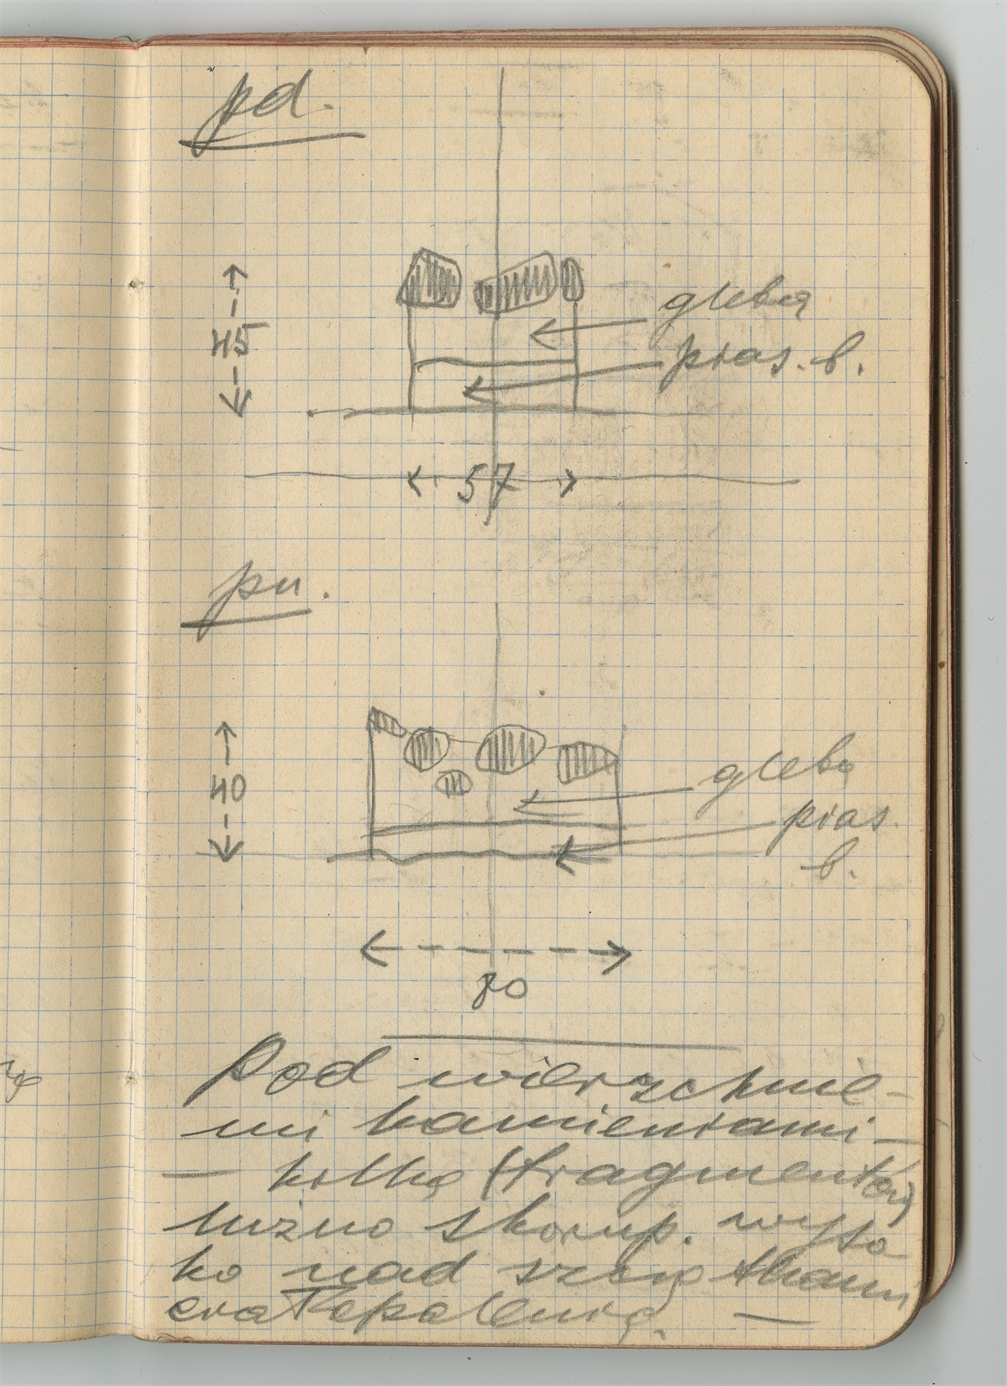 pd.
45
gleba
pias. b.
57
pn.
40
gleba
pias.
b.
80
Pod wierzchnie-
mi kamieniami -
- kilka (fragmentów)
luźno skorup. wyso
ko nad szczątkami